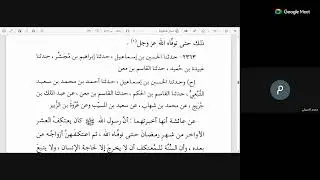 Google Meet
ذلك حتى توفّاه الله عز وجل (١).
٢٣٦٣- حدثنا الحسين بن إسماعيل، حدثنا إبراهيم بن مُجَشِّر، حدثنا
عَبيدة بن حُميد، حدثنا القاسم بن معن
(ح) وحدثنا الحسين بن إسماعيل، حدثنا أحمد بن محمد بن سعيد
التُّبَّعي، حدثنا القاسم بن الحكم، حدثنا القاسم بن معن، عن عبد الملك بن
جُرَيج، عن محمد بن شهاب، عن سعيد بن المسيّب وعن عُروة بن الزُّبير
عن عائشة أنها أخبرتهما: أنَّ رسول الله ﷺ كان يعتكفُ العشر
الأواخرَ من شهر رمضانَ حتى توفّاه الله، ثم اعتكفهنَّ أزواجُه من
بعده، وأن السُّنّة للمُعتكِف أن لا يخرج إلا لحاجة الإنسان، ولا يتبعَ
P